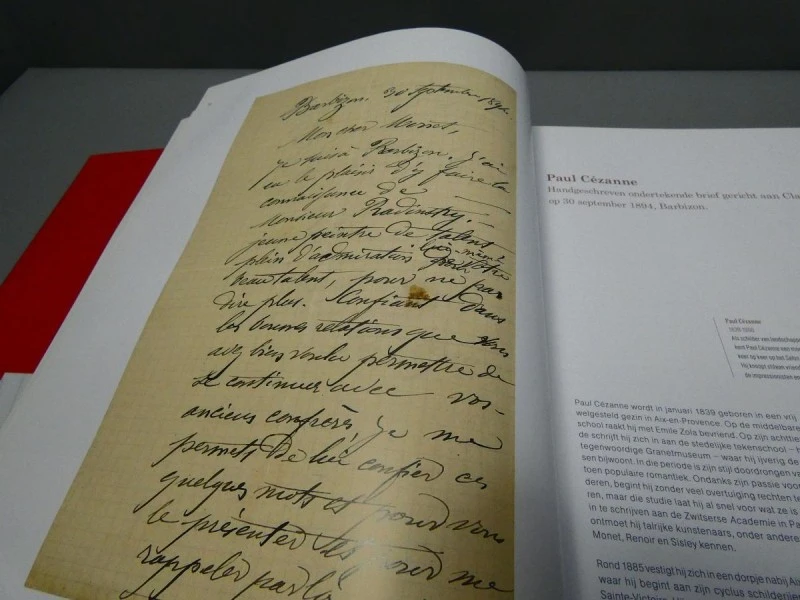 Barbizon, 30 septembre 1894.
Mon cher Monet,
je suis à Barbizon. J'ai
eu le plaisir d'y faire la
connaissance de
Monsieur Radinsky,
jeune peintre de talent
lui-même
plein d'admiration pour votre
beau talent, pour ne pas
dire plus. Confiant dans
les bonnes relations que vous
avez bien voulu permettre de
se continuer avec vos
anciens confrères, je me
permets de lui confier ces
quelques mots et pour vous
le présenter et pour me
rappeler par là
Paul Cézanne
Handgeschreven ondertekende brief gericht aan Cla
op 30 september 1894, Barbizon.
Paul Cézanne
1839-1906
Als schilder van landschappe
kent Paul Cézanne
keer op keer op het Salon
Hij knoopt
de impressionisten
Paul Cézanne wordt in januari 1839 geboren in een vrij
welgesteld gezin in Aix-en-Provence. Op de middelbare
school raakt hij met Emile Zola bevriend. Op zijn achttien
de schrijft hij zich in aan de stedelijke tekenschool – h
tegenwoordige Granetmuseum – waar hij ijverig de
sen bijwoont. In die periode is zijn stijl doordrongen van
toen populaire romantiek. Ondanks zijn passie voor
deren, begint hij zonder veel overtuiging rechten te
ren, maar die studie laat hij al snel voor wat ze is
in te schrijven aan de Zwitserse Academie in Pa
ontmoet hij talrijke kunstenaars, onder andere
Monet, Renoir en Sisley kennen.
Rond 1885 vestigt hij zich in een dorpje nabij Aix
waar hij begint aan zijn cyclus schilderijen
Sainte-Victoire